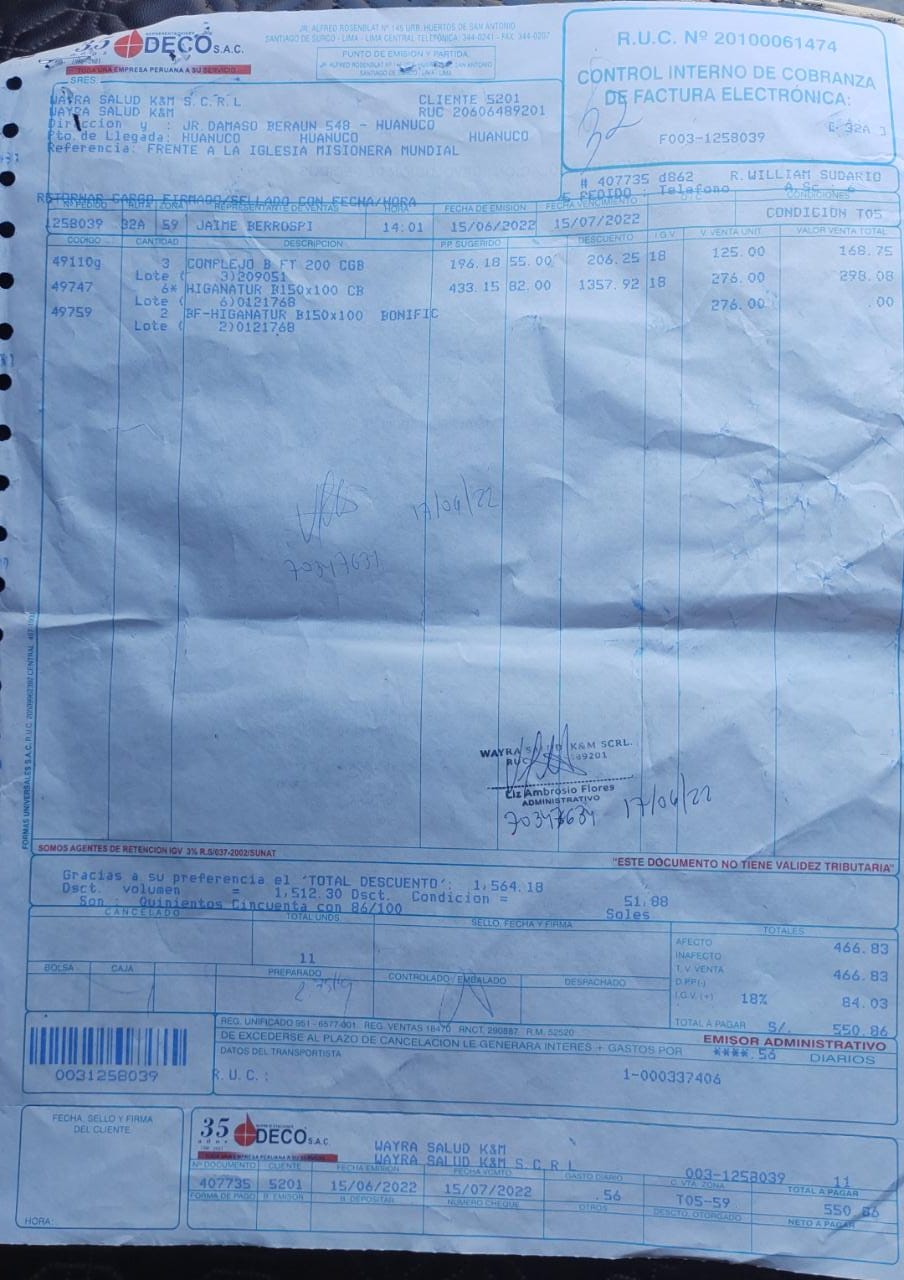 35 años REPRESENTACIONES DECO S.A.C.
TODA UNA EMPRESA PERUANA A SU SERVICIO
JR. ALFRED ROSENBLAT Nº 145 URB. HUERTOS DE SAN ANTONIO
SANTIAGO DE SURCO - LIMA - LIMA CENTRAL TELEFÓNICA: 344-0241 - FAX: 344-0207
PUNTO DE EMISION Y PARTIDA
JR. ALFREDO ROSENBLAT Nº 145 URB. HUERTOS DE SAN ANTONIO
SANTIAGO DE SURCO - LIMA - LIMA
R.U.C. Nº 20100061474
CONTROL INTERNO DE COBRANZA
DE FACTURA ELECTRÓNICA:
32
[ 32A ]
F003-1258039
SRES.
WAYRA SALUD K&M S.C.R.L CLIENTE 5201
WAYRA SALUD K&M RUC 20606489201
Direccion y : JR.DAMASO BERAUN 548 - HUANUCO
Pto.de Llegada: HUANUCO HUANUCO HUANUCO
Referencia: FRENTE A LA IGLESIA MISIONERA MUNDIAL
# 407735 d862 R.WILLIAM SUDARIO
RETORNAR CARGO FIRMADO/SELLADO CON FECHA/HORA
PEDIDO : Telefono
Nº PEDIDO RUTA / ZONA REPRESENTANTE DE VENTAS HORA FECHA DE EMISION FECHA VENCIMIENTO CONDICIONES
1258039 32A 59 JAIME BERROSPI 14:01 15/06/2022 15/07/2022 CONDICION T05
CODIGO CANTIDAD DESCRIPCION P.P. SUGERIDO DESCUENTO I.G.V. V. VENTA UNIT. VALOR VENTA TOTAL
49110g 3 COMPLEJO B FT 200 CGB 196.18 55.00 206.25 18 125.00 168.75
Lote ( 3)209051
49747 6* HIGANATUR B150x100 CB 433.15 82.00 1357.92 18 276.00 298.08
Lote ( 6)0121768
49759 2 BF-HIGANATUR B150x100 BONIFIC 276.00 .00
Lote ( 2)0121768
17/06/22
70347631
WAYRA SALUD K&M SCRL.
RUC 89201
Liz Ambrosio Flores
ADMINISTRATIVO
70347631 17/06/22
FORMAS UNIVERSALES S.A.C. R.U.C.
SOMOS AGENTES DE RETENCION IGV 3% R.S/037-2002/SUNAT
"ESTE DOCUMENTO NO TIENE VALIDEZ TRIBUTARIA"
Gracias a su preferencia el 'TOTAL DESCUENTO': 1,564.18
Dsct. volumen = 1,512.30 Dsct. Condicion = 51.88
Son : Quinientos Cincuenta con 86/100 Soles
CANCELADO TOTAL UNDS. SELLO, FECHA Y FIRMA TOTALES
11
AFECTO 466.83
INAFECTO
T. V. VENTA 466.83
D.P.P.(-)
I.G.V. (+) 18% 84.03
TOTAL A PAGAR S/. 550.86
BOLSA CAJA PREPARADO CONTROLADO / EMBALADO DESPACHADO
REG. UNIFICADO 951 - 6577-001 REG. VENTAS 18470 RNCT. 290887 R.M. 52520
EMISOR ADMINISTRATIVO
DE EXCEDERSE AL PLAZO DE CANCELACION LE GENERARA INTERES + GASTOS POR ****.56 DIARIOS
DATOS DEL TRANSPORTISTA
R.U.C.: 1-000337406
0031258039
FECHA, SELLO Y FIRMA
DEL CLIENTE
HORA:
35 años REPRESENTACIONES DECO S.A.C.
TODA UNA EMPRESA PERUANA A SU SERVICIO
WAYRA SALUD K&M
WAYRA SALUD K&M S.C.R.L
003-1258039 11
Nº DOCUMENTO CLIENTE FECHA EMISION FECHA VCMTO GASTO DIARIO C. VTA. ZONA TOTAL A PAGAR
407735 5201 15/06/2022 15/07/2022 .56 T05-59 550.86
FORMA DE PAGO B. EMISOR B. DEPOSITAR NUMERO CHEQUE OTROS DESCTO. OTORGADO NETO A PAGAR